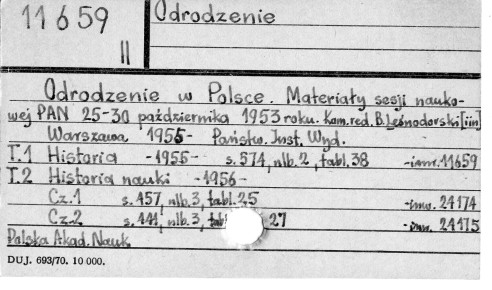 11659
II
Odrodzenie
Odrodzenie w Polsce. Materiały sesji nauko-
wej PAN 25-30 października 1953 roku. Kom. red. B. Leśnodorski [i in]
Warszawa 1955- Państw. Inst. Wyd.
T.1 Historia -1955- s. 574, nlb. 2, tabl. 38 -inw. 11659
T.2 Historia nauki -1956-
Cz.1 s. 457, nlb. 3, tabl. 25 -inw. 24174
Cz.2 s. 441, nlb. 3, 27 -inw. 24175
Polska Akad. Nauk
DUJ. 693/70. 10 000.